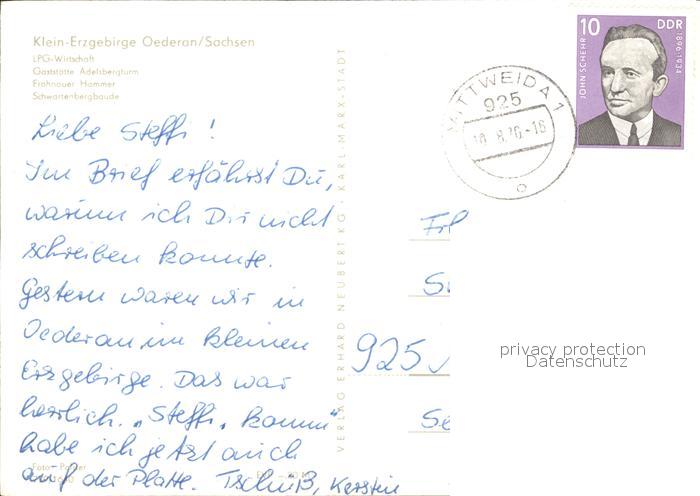 Klein-Erzgebirge Oederan/Sachsen
LPG-Wirtschaft
Gaststätte Adelsbergturm
Frohnauer Hammer
Schwartenbergbaude
Liebe Steffi!
Im Brief erfährst Du,
warum ich Dir nicht
schreiben konnte.
Gestern waren wir in
Oederan im kleinen
Erzgebirge. Das war
herrlich. „Steffi, komm"
habe ich jetzt auch
auf der Platte. Tschüß, Kerstin
Foto-
VERLAG ERHARD NEUBERT KG · KARL-MARX-STADT
MITTWEIDA 1
925
-16
10 DDR
JOHN SCHEHR
1896-1934
925
privacy protection
Datenschutz